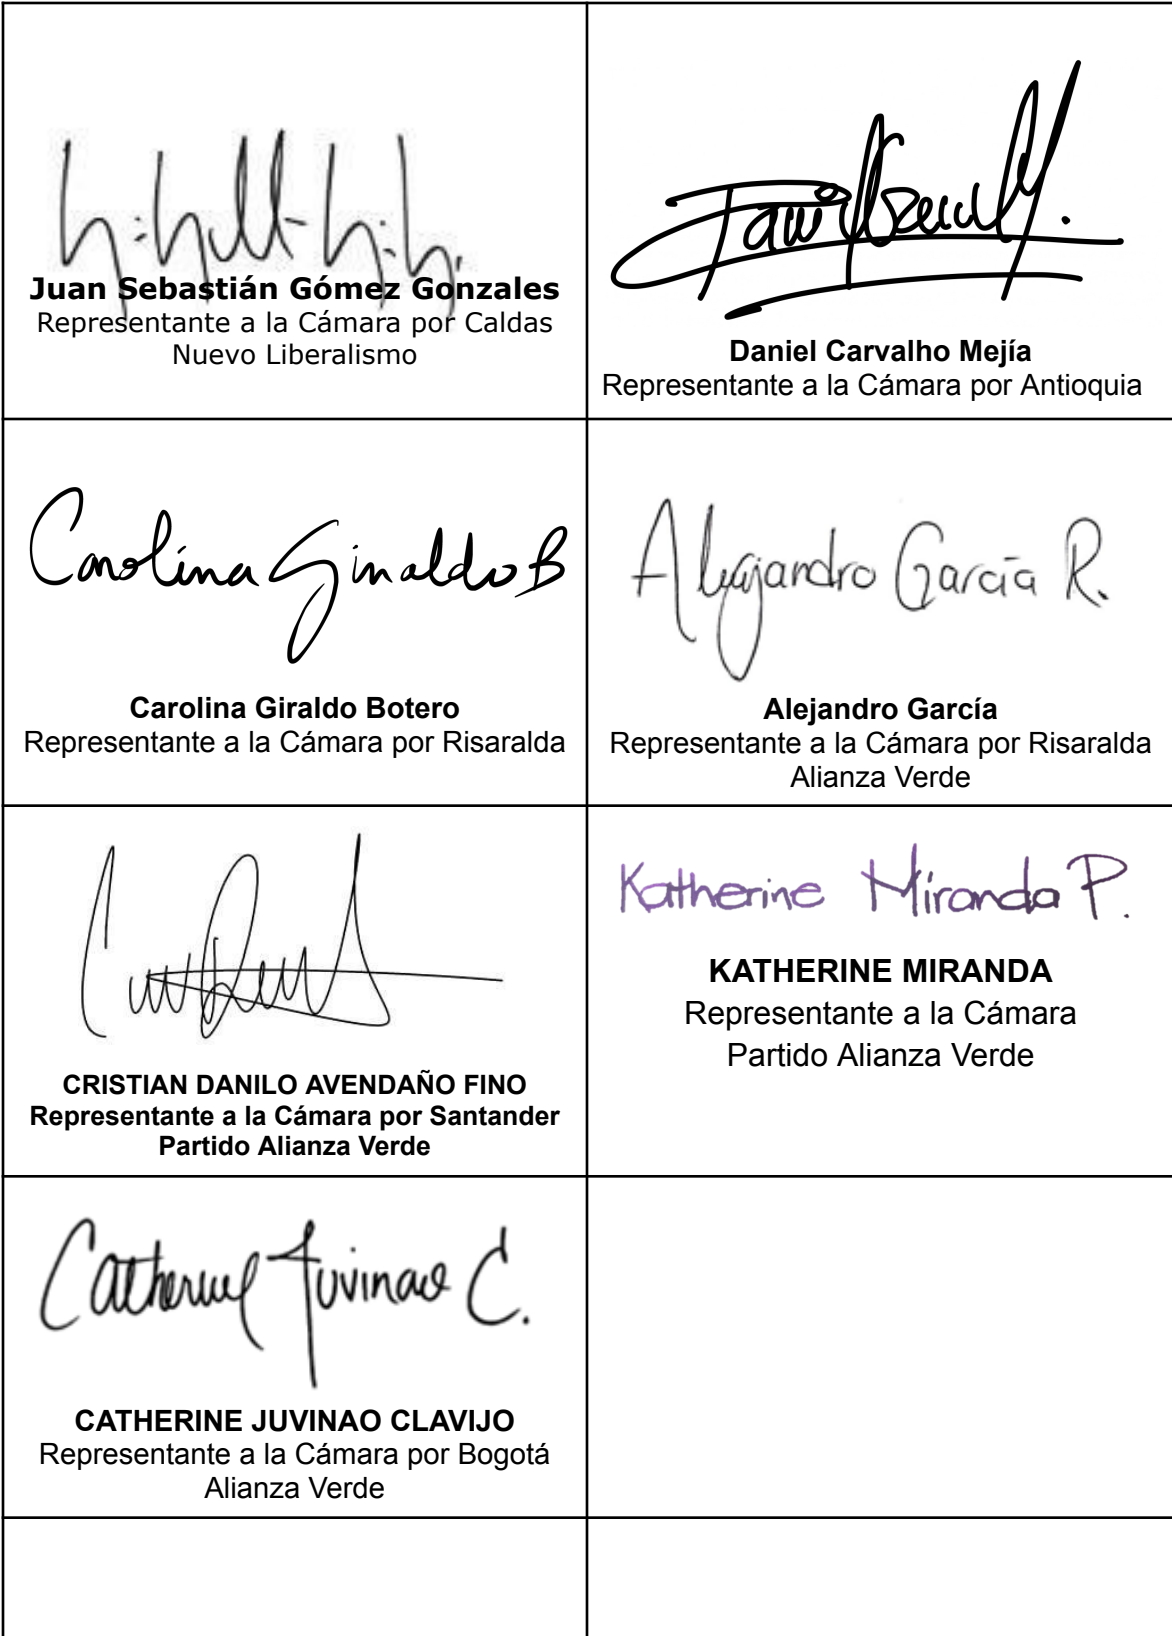 Juan Sebastián Gómez Gonzales
Representante a la Cámara por Caldas
Nuevo Liberalismo
Daniel Carvalho Mejía
Representante a la Cámara por Antioquia
Carolina Giraldo B
Carolina Giraldo Botero
Representante a la Cámara por Risaralda
Alejandro García R.
Alejandro García
Representante a la Cámara por Risaralda
Alianza Verde
CRISTIAN DANILO AVENDAÑO FINO
Representante a la Cámara por Santander
Partido Alianza Verde
Katherine Miranda P.
KATHERINE MIRANDA
Representante a la Cámara
Partido Alianza Verde
Catherine Juvinao C.
CATHERINE JUVINAO CLAVIJO
Representante a la Cámara por Bogotá
Alianza Verde